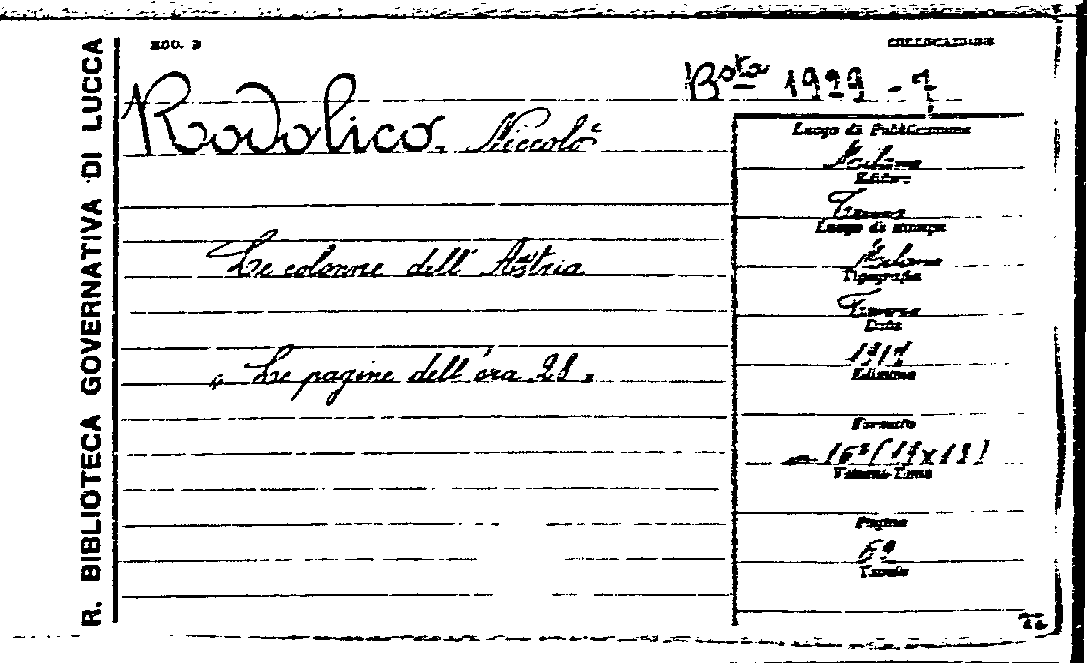 R. BIBLIOTECA GOVERNATIVA DI LUCCA
MOD. 3
COLLOCAZIONE
Bsta 1929 - 7
Rodolico, Niccolò
Le colonne dell' Austria
"Le pagine dell'ora 28"
Luogo di Pubblicazione
Milano
Editore
Treves
Luogo di stampa
Milano
Tipografia
Treves
Data
1917
Edizione
Formato
Volume-Tomo
Pagine
69
Tavole